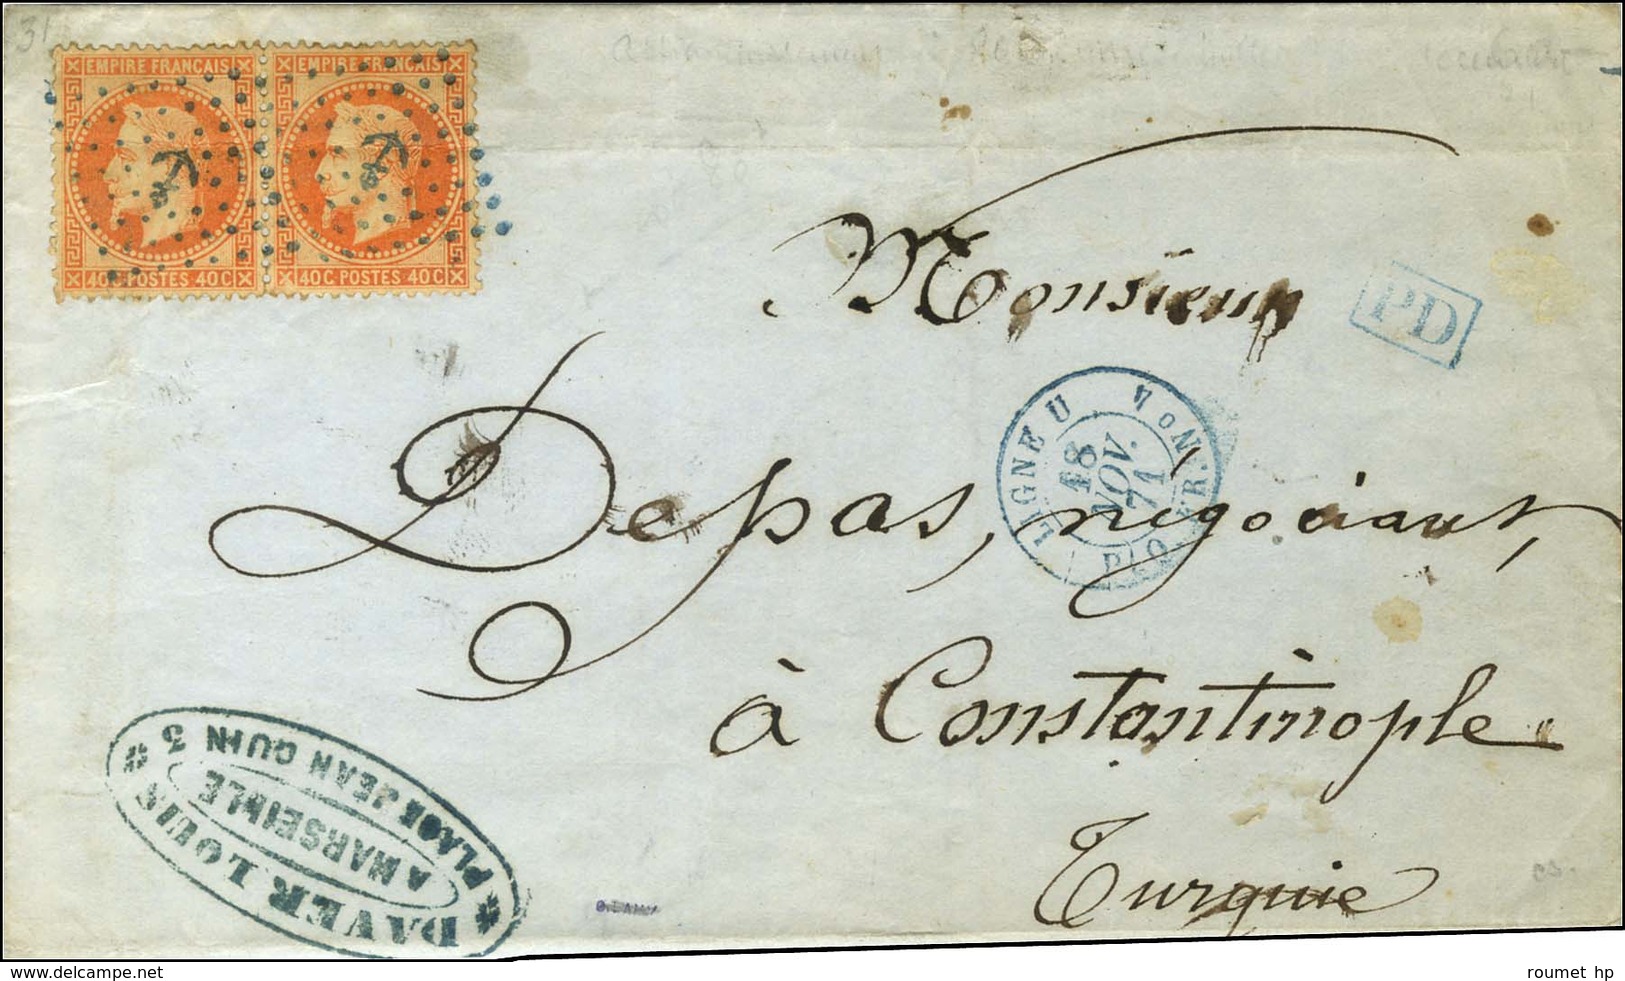 EMPIRE FRANÇAIS EMPIRE FRANÇAIS
40 C. POSTES 40 C 40 C. POSTES 40 C
Monsieur
PD
LIGNE U
PAQ. FR. Nº 4
18
NOV.
71
Depas, négociant,
à Constantinople
Turquie
DAVER LOUIS
A MARSEILLE
PLACE JEAN GUIN 3
www.delcampe.net
roumet hp